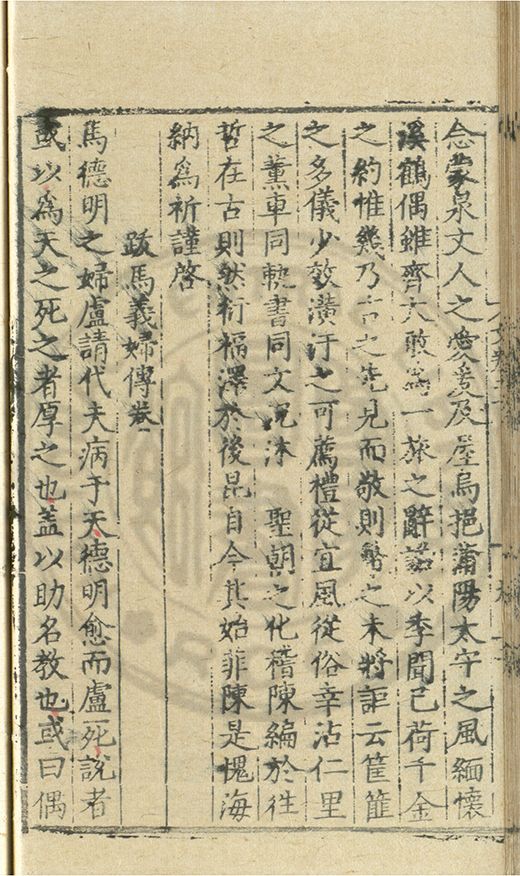 念蒙泉丈人之愛爰及屋烏挹莆陽太守之風緬懷
溪鶴偶雖齊大敢爲一旅之辭諾以季聞已荷千金
之約惟幾乃吉之先見而敬則幣之未將詎云筐篚
之多儀少效潢汙之可薦禮從宜風從俗幸沾仁里
之薰車同軌書同文沉沐 聖朝之化稽陳編於往
哲在古則然衍福澤於後昆自今其始菲陳是愧海
納爲祈謹啓
跋馬義婦傳卷
馬德明之婦盧請代夫病于天德明愈而盧死說者
或以爲天之死之者厚之也盖以助名教也或曰偶